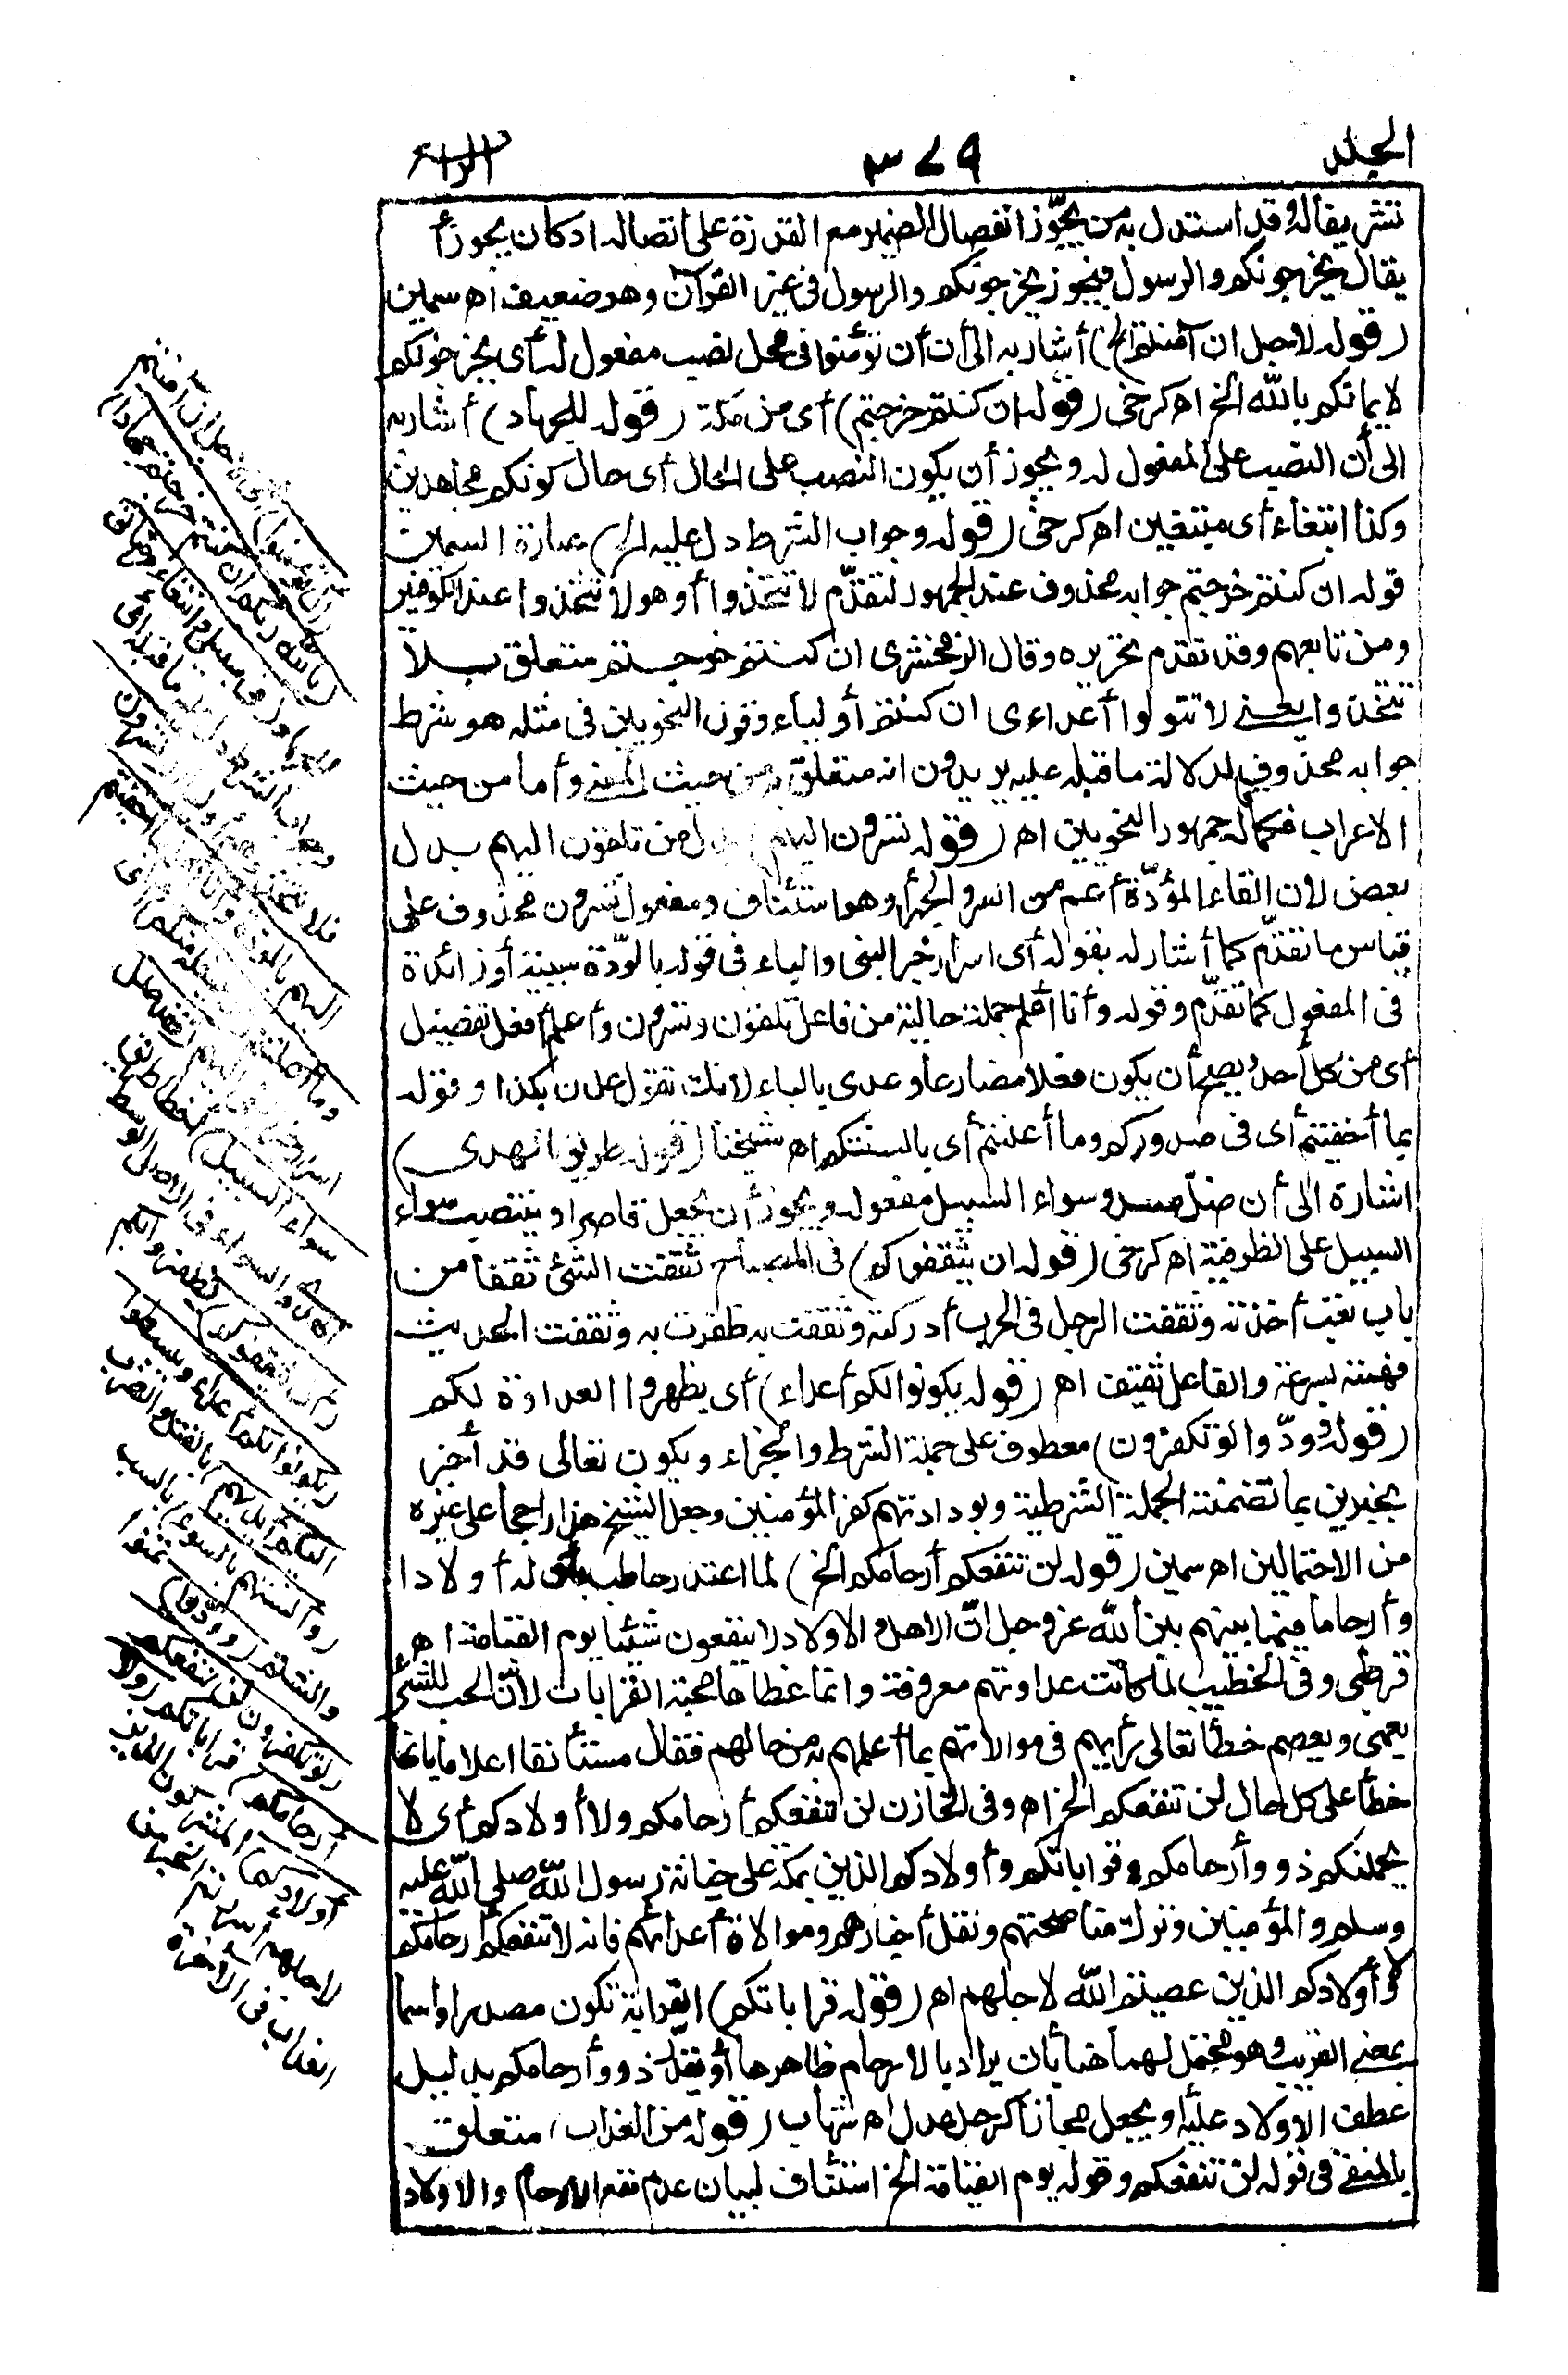 الجلد
٣٧٩
الرابع
يقال يخرجونكم والرسول فيجوز يخرجونكم والرسول فى غير القرآن وهو ضعيف اه سمين
(قوله لاجل ان آمنتم الخ) أشار به الى أن أن تؤمنوا فى محل نصب مفعول له أى يخرجونكم
لايمانكم بالله الخ اه كرخى (قوله ان كنتم خرجتم) أى من مكة (قوله للجهاد) أشار به
الى أن النصب على المفعول له ويجوز أن يكون النصب على الحال أى حال كونكم مجاهدين
وكذا ابتغاء أى مبتغين اه كرخى (قوله وجواب الشرط دل عليه الخ) عبارة السمين
قوله ان كنتم خرجتم جوابه محذوف عند الجمهور لتقدّم لا تتخذوا أو هو لا تتخذوا عند الكوفيين
ومن تابعهم وقد تقدم تحريره وقال الزمخشرى ان كنتم خرجتم متعلق بلا
تتخذوا يعنى لا تتولوا أعداءى ان كنتم أولياءى وقول النحويين فى مثله هو شرط
جوابه محذوف لدلالة ما قبله عليه يريدون انه متعلق به من حيث المعنى وأما من حيث
الاعراب فكما قال جمهور النحويين اه (قوله تسرون اليهم) بدل من تلقون اليهم بدل
بعض لان القاء المودّة أعم من السر والجهر أو هو استئناف ومفعول تسرون محذوف على
قياس ما تقدّم كما أشار له بقوله أى اسرار خبر النبى والباء فى قوله بالمودّة سببية أو زائدة
فى المفعول كما تقدّم وقوله وأنا أعلم جملة حالية من فاعل تلقون وتسرون وأعلم أفعل تفضيل
أى من كل أحد ويصح أن يكون فعلا مضارعا وعدى بالباء لانك تقول علمت بكذا وقوله
بما أخفيتم أى فى صدوركم وما أعلنتم أى بالسنتكم اه شيخنا (قوله طريق الهدى)
اشارة الى أن ضلّ متعد وسواء السبيل مفعوله ويجوز أن يجعل قاصرا وينتصب سواء
السبيل على الظرفية اه كرخى (قوله ان يثقفوكم) فى المصباح ثقفت الشئ ثقفا من
باب تعب أخذته وثقفت الرجل فى الحرب أدركته وثقفت به ظفرت به وثقفت الحديث
فهمته بسرعة والفاعل ثقيف اه (قوله يكونوا لكم أعداء) أى يظهروا العداوة لكم
(قوله وودّوا لو تكفرون) معطوف على جملة الشرط والجزاء ويكون تعالى قد أخبر
بخبرين بما تضمنته الجملة الشرطية وبودادتهم كفر المؤمنين وجعل الشيخ هذا راجحا على غيره
من الاحتمالين اه سمين (قوله لن تنفعكم أرحامكم الخ) لما اعتذر حاطب بأن له أولادا
وأرحاما فيما بينهم بين الله عز وجل أنّ الاهل والاولاد لا ينفعون شيئا يوم القيامة اه
قرطبى وفى الخطيب لما كانت عداوتهم معروفة وانما غطاها محبة القرابات لانّ الحب للشئ
يعمى ويصم خطأ تعالى رأيهم فى موالاتهم بما أعلمهم به من حالهم فقال مستأنفا اعلاما بانها
خطأ على كل حال لن تنفعكم الخ اه وفى الخازن لن تنفعكم أرحامكم ولا أولادكم أى لا
يحملنكم ذوو أرحامكم وقراباتكم وأولادكم الذين بمكة على خيانة رسول الله صلى الله عليه
وسلم والمؤمنين وترك مناصحتهم ونقل أخبارهم وموالاة أعدائهم فانه لا تنفعكم أرحامكم
ولا أولادكم الذين عصيتم الله لاجلهم اه (قوله قراباتكم) القرابة تكون مصدرا واسما
بمعنى القريب وهو محتمل لهما هنا بأن يراد بالارحام ظاهرها أو يقدّر ذوو أرحامكم بدليل
عطف الاولاد عليه أو يجعل مجازا كرجل عدل اه شهاب (قوله من العذاب) متعلق
بالمنفى فى قوله لن تنفعكم وقوله يوم القيامة الخ استئناف لبيان عدم نفع الارحام والاولاد
سواء السبيل)
(ان يثقفوكم)
يكونوا لكم أعداء ويبسطوا
اليكم أيديهم) بالقتل والضرب
(وألسنتهم بالسوء) بالسب
والشتم (وودّوا) تمنوا
(لو تكفرون لن تنفعكم
أرحامكم) قراباتكم (ولا
أولادكم) المشركون الذين
العذاب فى الآخرة